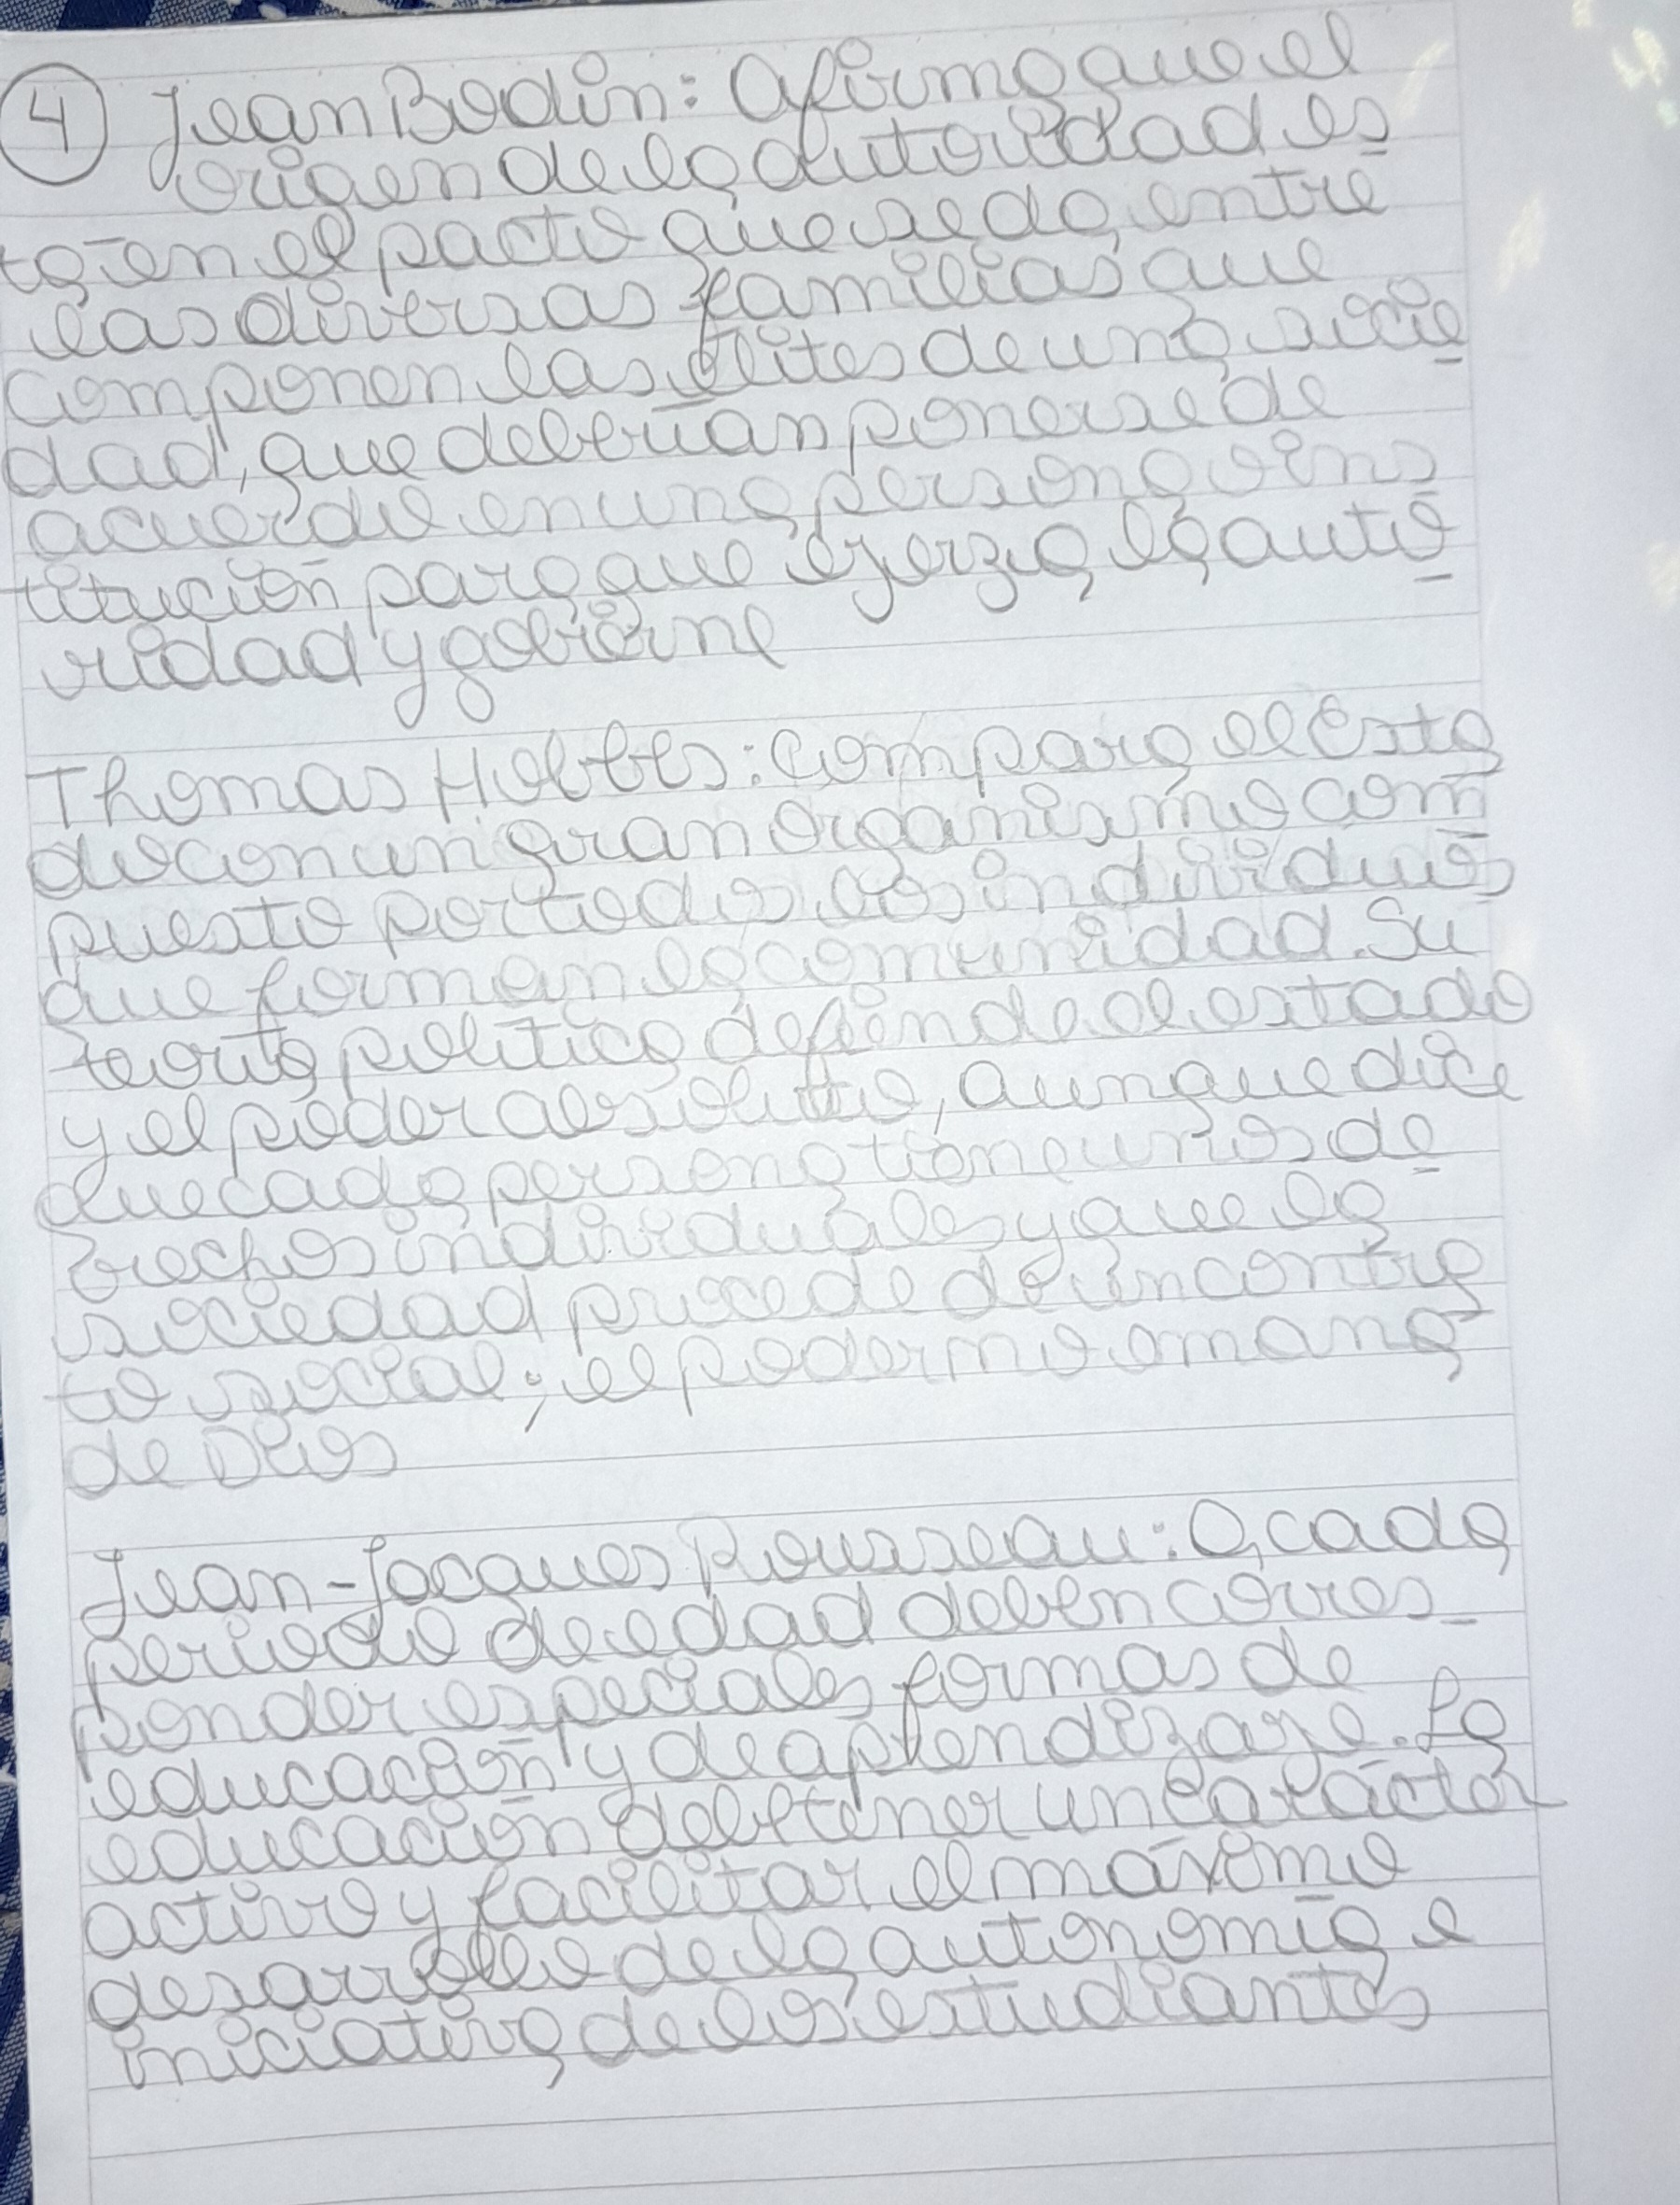 4 Jean Bodin: Afirma que el
origen de la autoridad es
ta en el pacto que se da entre
las diversas familias que
componen las élites de una socie
dad, que deberían ponerse de
acuerdo en una persona o ins
titución para que ejerza la auto
ridad y gobierne
Thomas Hobbes: Compara el Esta
do con un gran organismo com
puesto por todos los individuos
que forman la comunidad. Su
teoría política defiende el estado
y el poder absoluto, aunque dice
que cada persona tiene unos de
rechos individuales y que la
sociedad procede de un contra
to social; el poder no emana
de Dios
Jean-Jacques Rousseau: A cada
periodo de edad deben corres
ponder especiales formas de
educación y de aprendizaje. La
educación debe tener un carácter
activo y facilitar el máximo
desarrollo de la autonomía e
iniciativa de los estudiantes